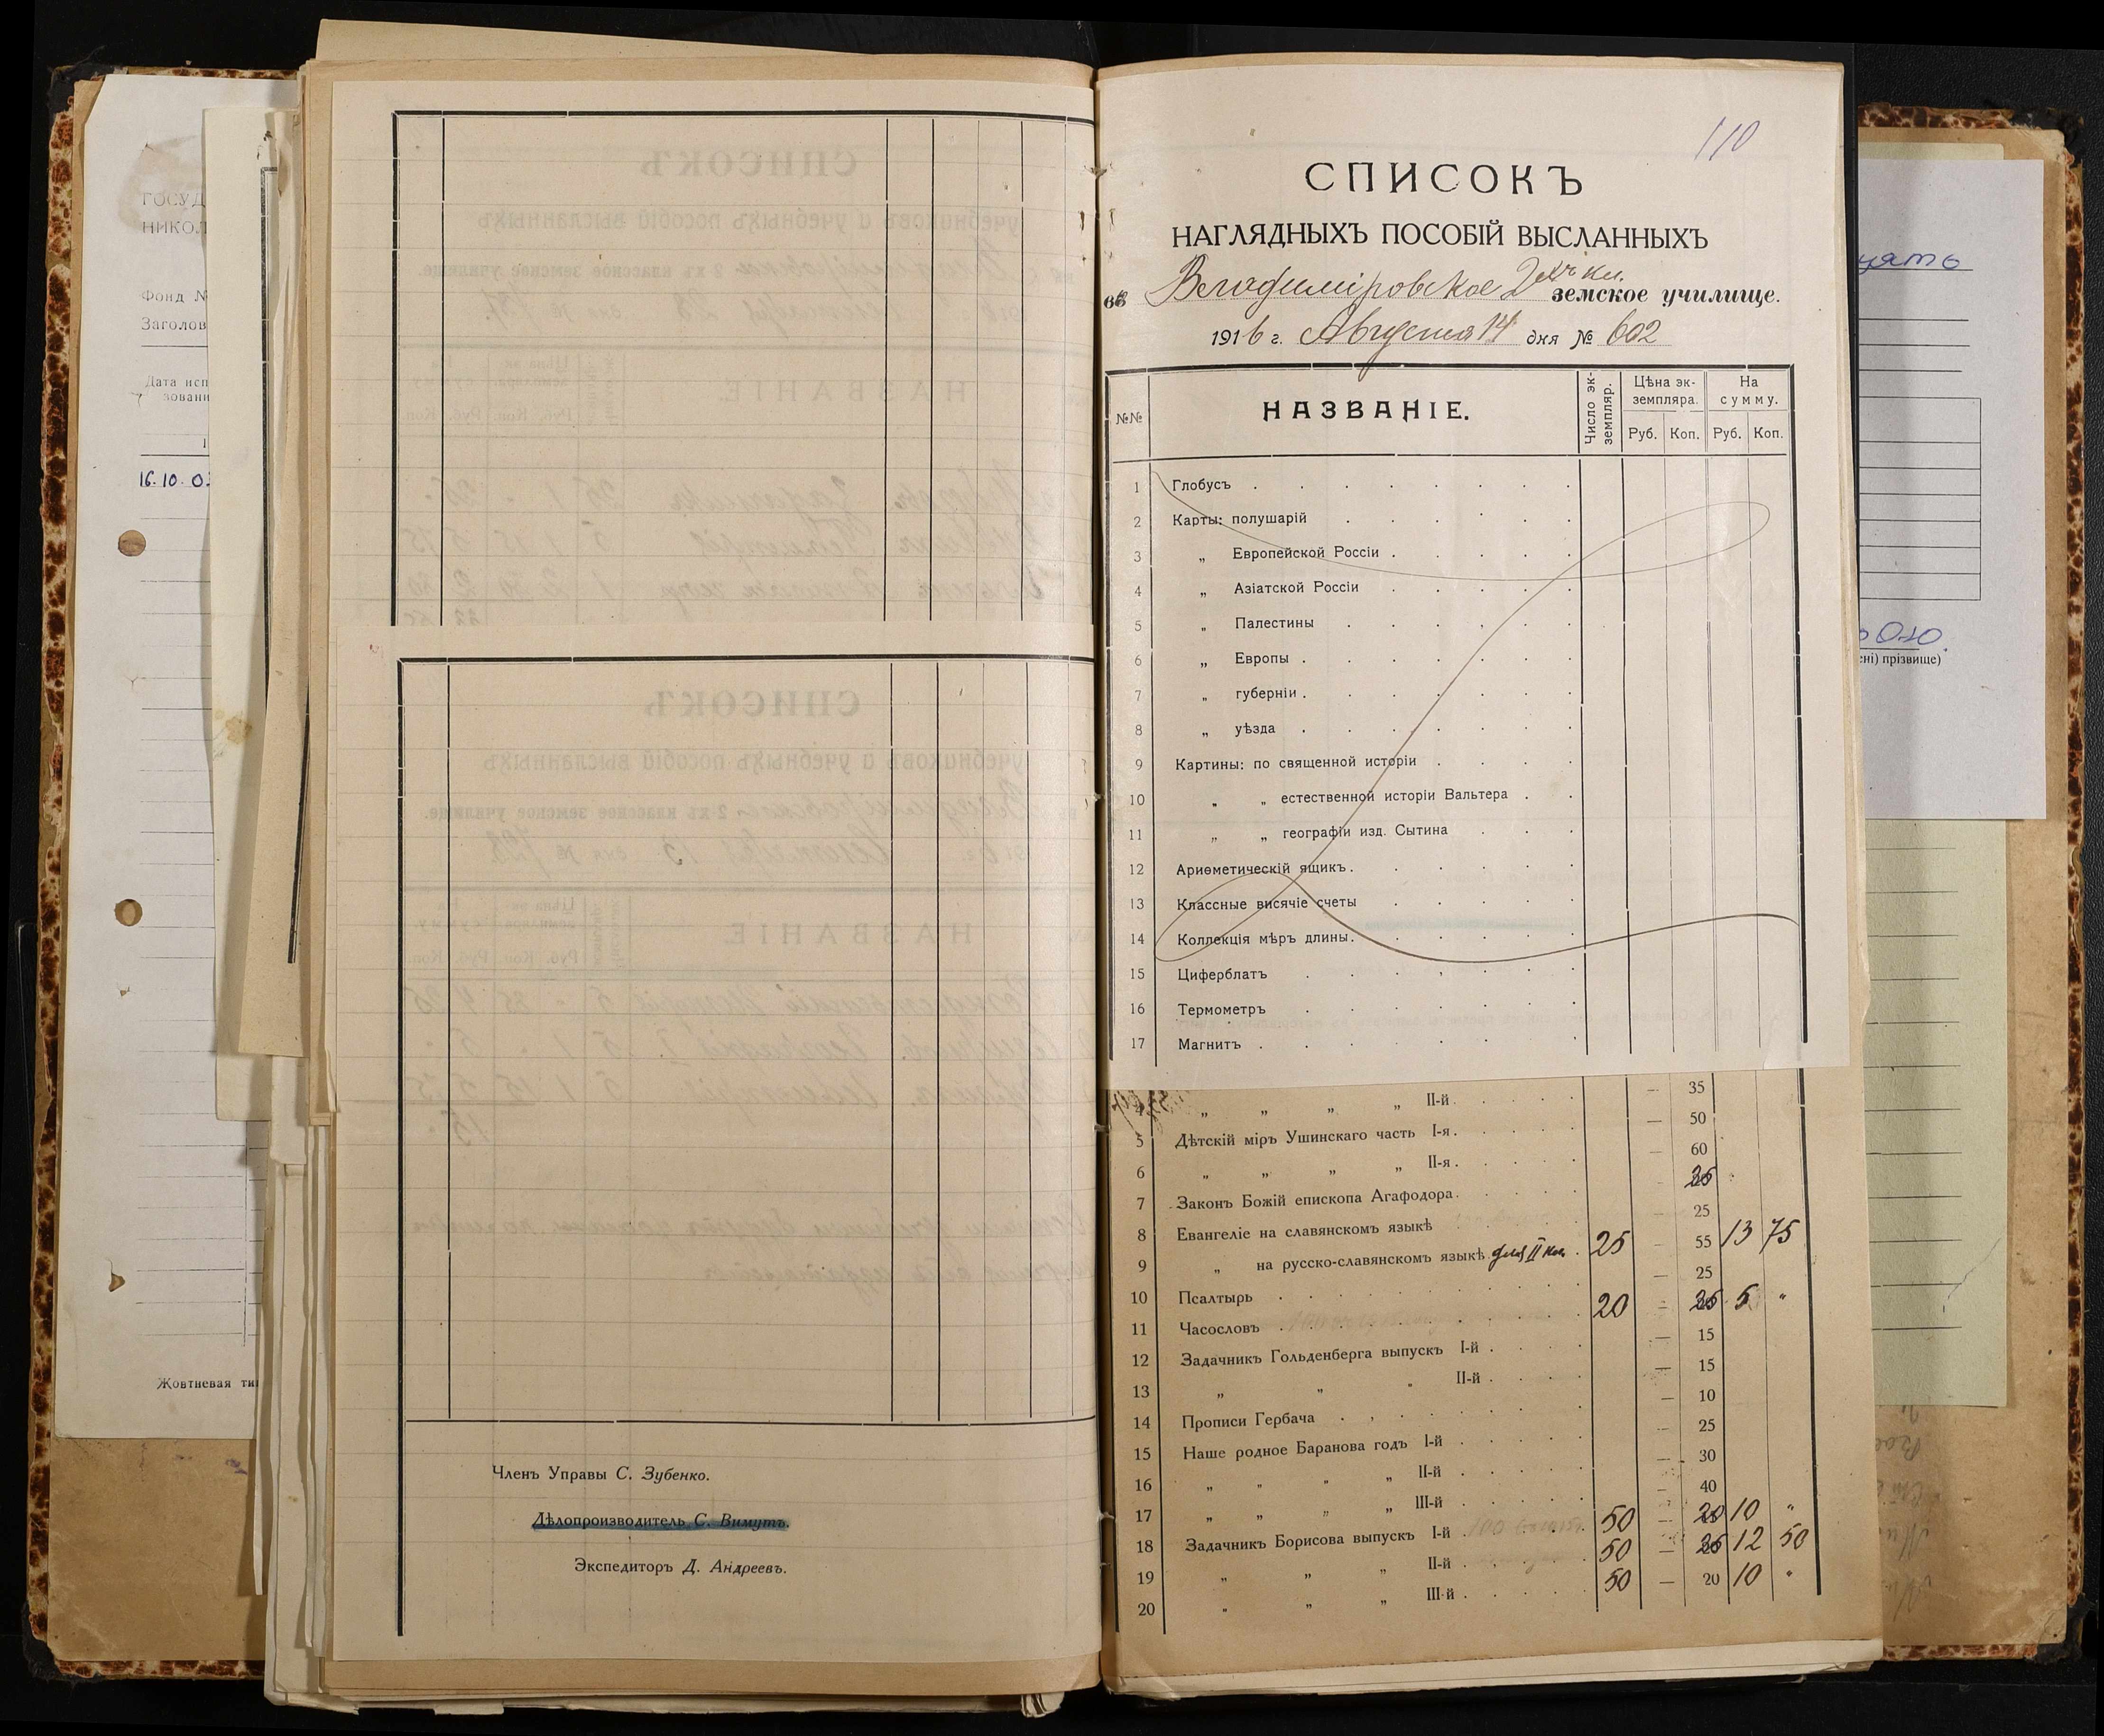 ГОСУД
НИКОЛ
Фонд №
Заголов
Дата исп
зовани
16.10.03
Жовтневая ти
Членъ Управы С. Зубенко.
Дѣлопроизводитель С. Вимутъ.
Экспедиторъ Д. Андреевъ.
110
СПИСОКЪ
НАГЛЯДНЫХЪ ПОСОБІЙ ВЫСЛАННЫХЪ
въ Владиміровское 2хъ кл. земское училище.
1916 г. Августа 14 дня № 602
№№ НАЗВАНІЕ. Число эк-земпляр. Цѣна эк-земпляра. На сумму.
Руб. Коп. Руб. Коп.
1 Глобусъ
2 Карты: полушарій
3 „ Европейской Россіи
4 „ Азіатской Россіи
5 „ Палестины
6 „ Европы
7 „ губерніи
8 „ уѣзда
9 Картины: по священной исторіи
10 „ „ естественной исторіи Вальтера
11 „ „ географіи изд. Сытина
12 Ариѳметическій ящикъ
13 Классные висячіе счеты
14 Коллекція мѣръ длины
15 Циферблатъ
16 Термометръ
17 Магнитъ
„ „ „ „ II-й — 35
5 Дѣтскій міръ Ушинскаго часть I-я — 50
6 „ „ „ „ II-я — 60
7 Законъ Божій епископа Агафодора 25
8 Евангеліе на славянскомъ языкѣ — 25
9 „ на русско-славянскомъ языкѣ для II кл. 25 — 55 13 75
10 Псалтырь — 25
11 Часословъ 20 — 25 5 "
12 Задачникъ Гольденберга выпускъ I-й — 15
13 „ „ „ II-й — 15
14 Прописи Гербача — 10
15 Наше родное Баранова годъ I-й — 25
16 „ „ „ II-й — 30
17 „ „ „ „ III-й — 40
18 Задачникъ Борисова выпускъ I-й 50 — 20 10 "
19 „ „ „ II-й 50 — 25 12 50
20 „ „ „ III-й 50 — 20 10 "
ені) прізвище)